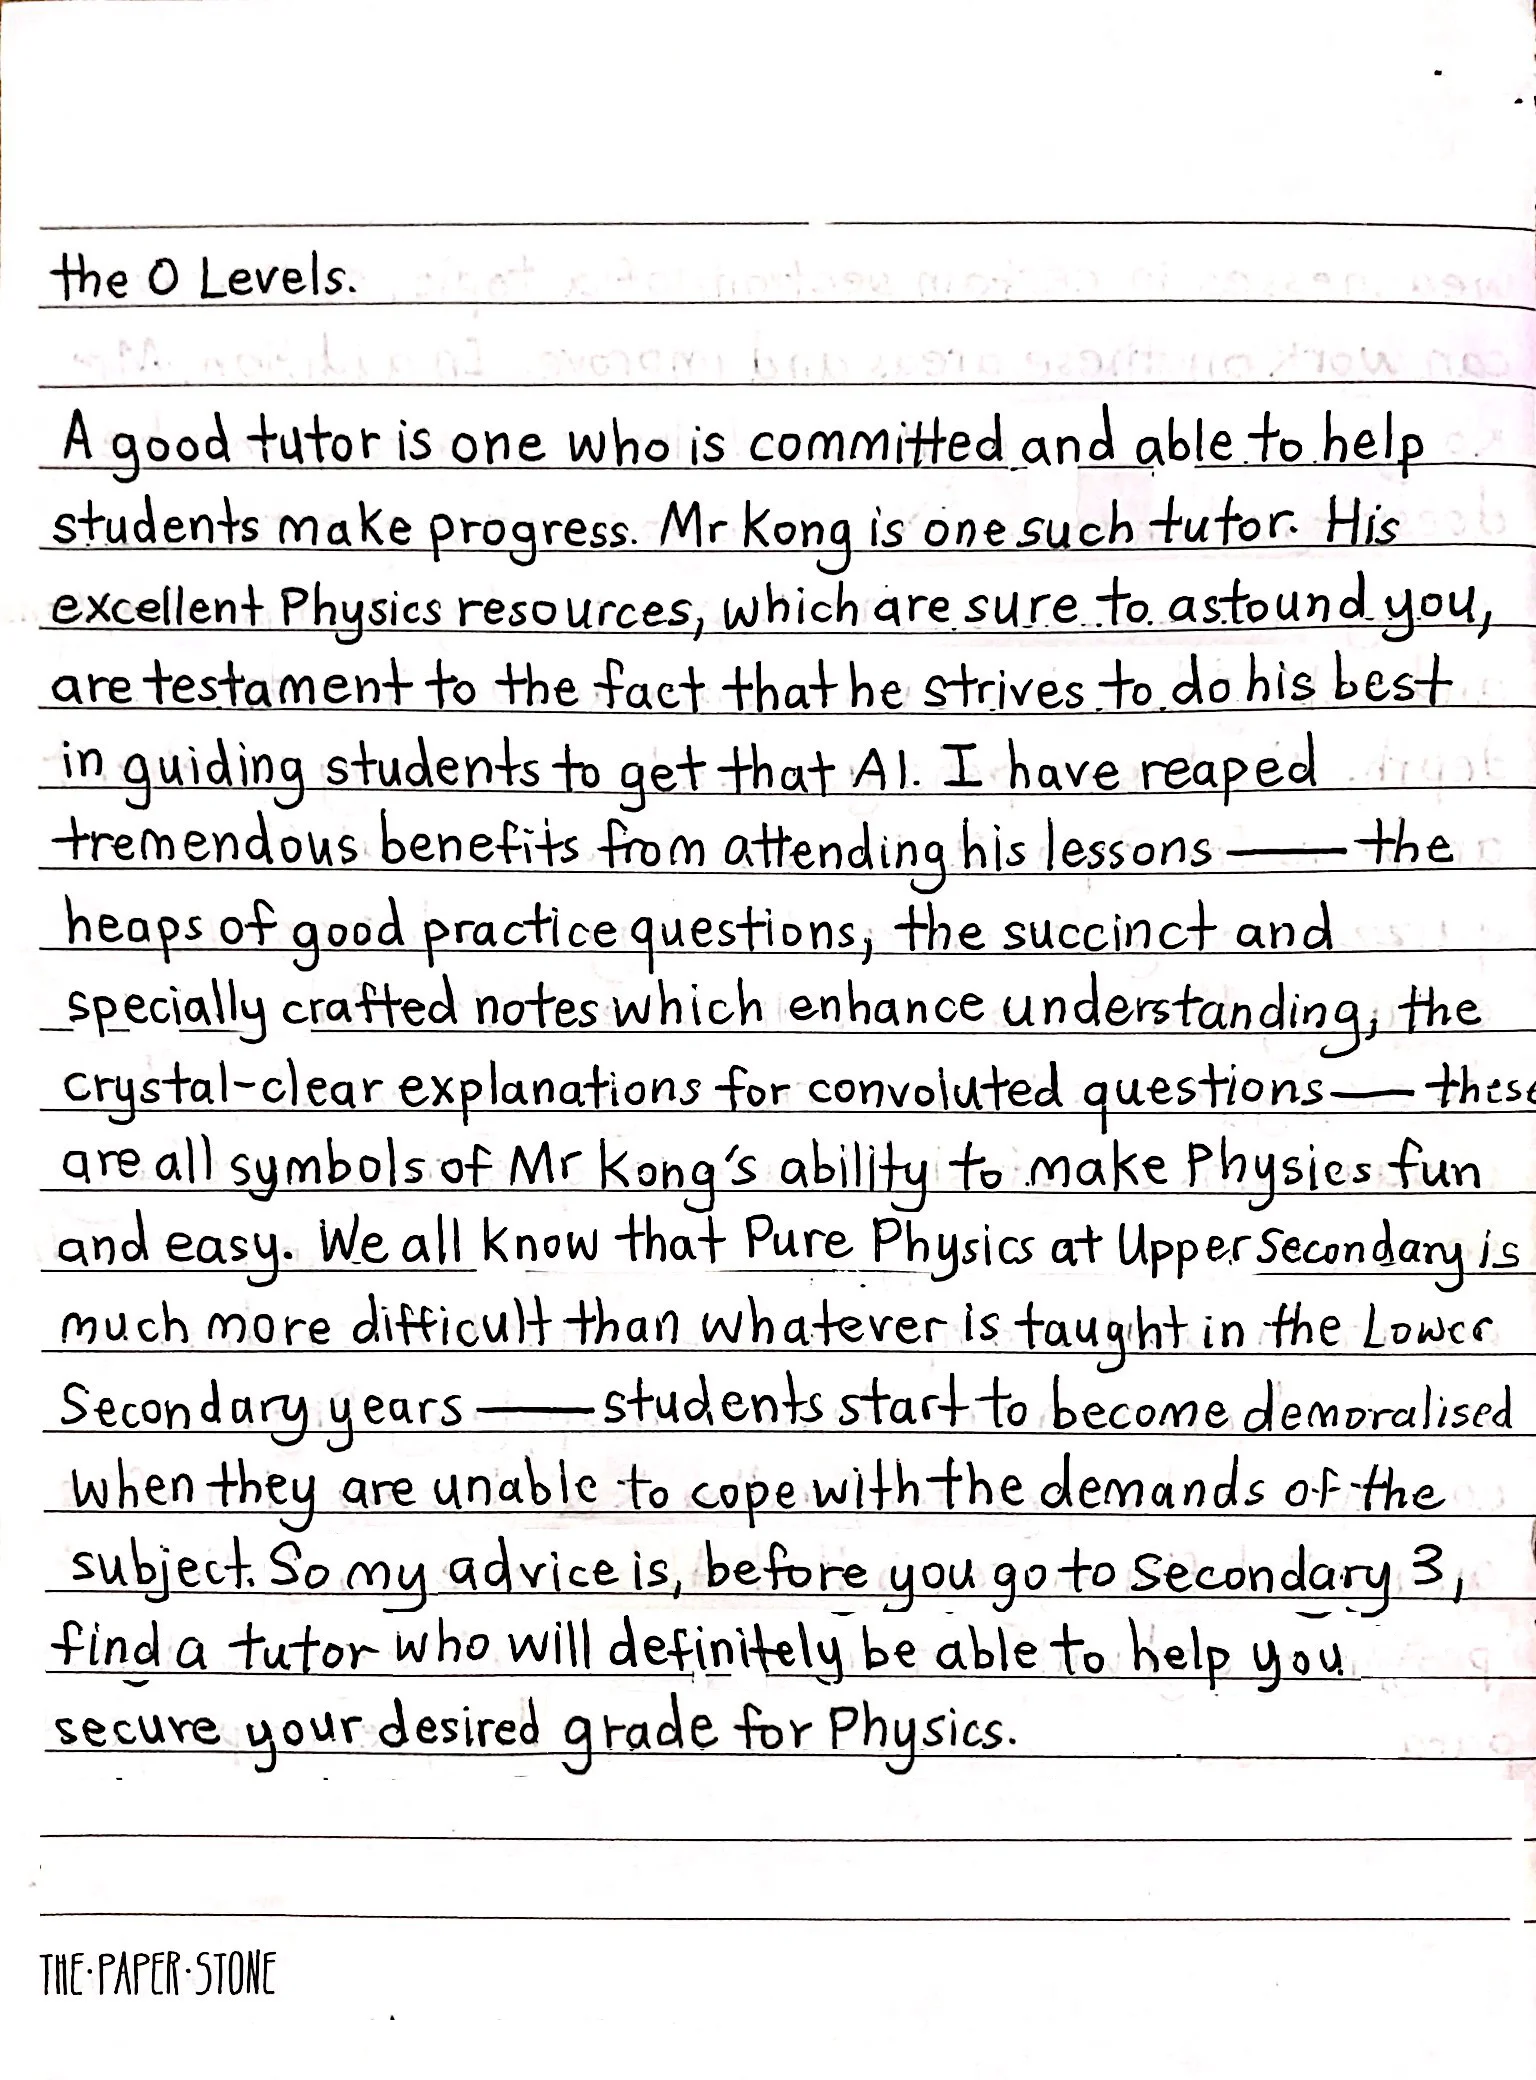 the O Levels.
A good tutor is one who is committed and able to help
students make progress. Mr Kong is one such tutor. His
excellent Physics resources, which are sure to astound you,
are testament to the fact that he strives to do his best
in guiding students to get that A1. I have reaped
tremendous benefits from attending his lessons — the
heaps of good practice questions, the succinct and
specially crafted notes which enhance understanding, the
crystal-clear explanations for convoluted questions — these
are all symbols of Mr Kong's ability to make Physics fun
and easy. We all know that Pure Physics at Upper Secondary is
much more difficult than whatever is taught in the Lower
Secondary years — students start to become demoralised
when they are unable to cope with the demands of the
subject. So my advice is, before you go to Secondary 3,
find a tutor who will definitely be able to help you
secure your desired grade for Physics.
THE·PAPER·STONE